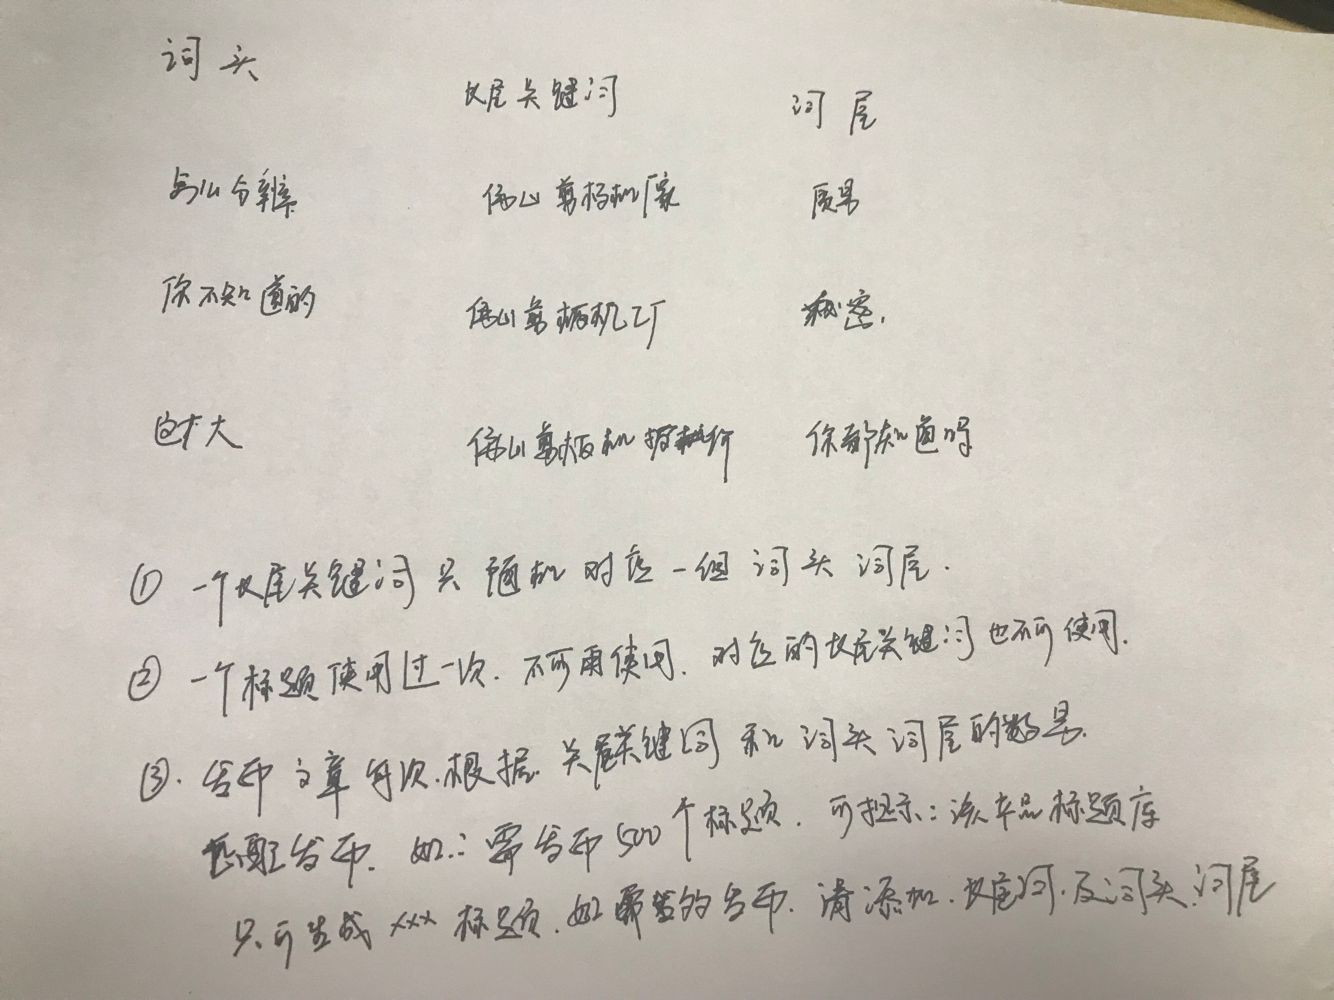 词头 长尾关键词 词尾
怎么分辨 佛山剪板机厂家 质量
你不知道的 佛山剪板机工厂 秘密.
强大 佛山剪板机 你都知道吗
① 一个长尾关键词只随机对应一组词头词尾.
② 一个标题使用过一次.不可再使用.对应的长尾关键词也不可使用.
③.发布文章每次.根据.长尾关键词和词头词尾的数量.
匹配发布.如:需发布500个标题.可提示:该产品标题库
只可生成xxx标题.如需 的发布.请添加.长尾词.及词头.词尾